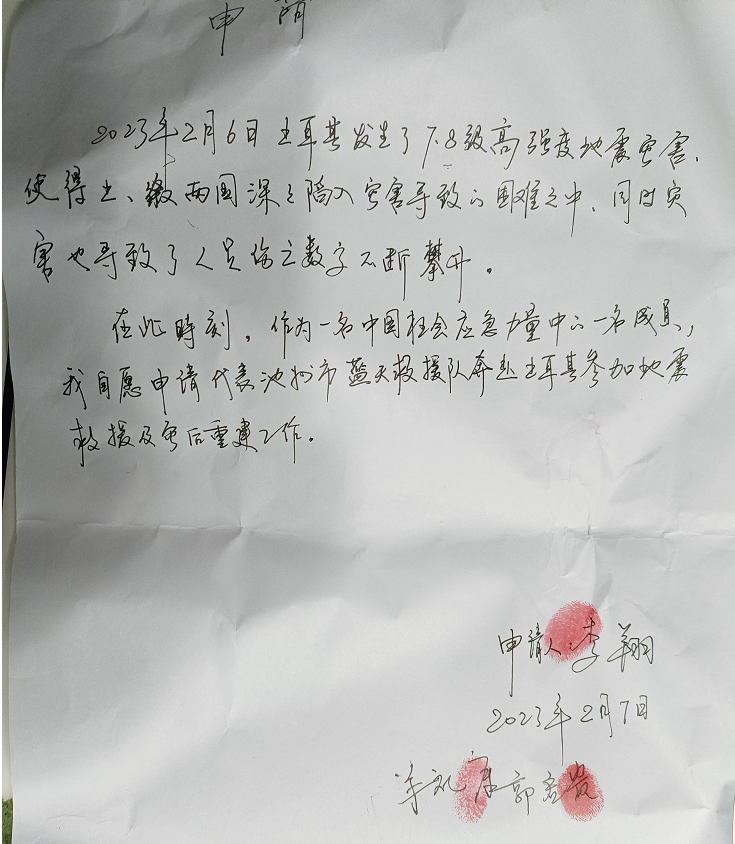 申请
2023年2月6日土耳其发生了7.8级高强度地震灾害、
使得土、叙两国深深陷入灾害导致的困难之中、同时灾
害也导致了人员伤亡数字不断攀升。
在此時刻，作为一名中国社会应急力量中的一名成员，
我自愿申请代表池州市蓝天救援队奔赴土耳其参加地震
救援及灾后重建工作。
申请人：李翔
2023年2月7日
郭